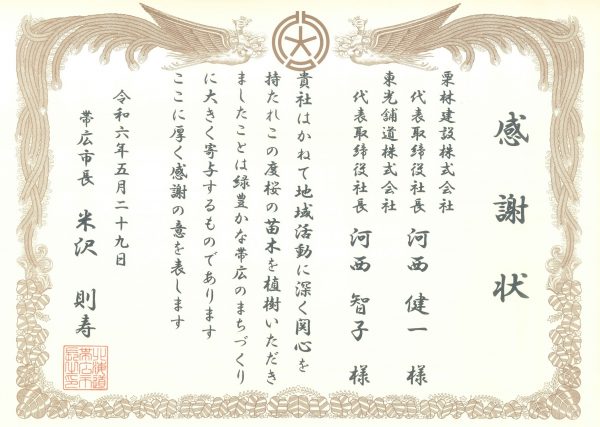 感謝状
栗林建設株式会社
代表取締役社長 河西健一様
東光舗道株式会社
代表取締役社長 河西智子様
貴社はかねて地域活動に深く関心を
持たれこの度桜の苗木を植樹いただき
ましたことは緑豊かな帯広のまちづくり
に大きく寄与するものであります
ここに厚く感謝の意を表します
令和六年五月二十九日
帯広市長 米沢則寿
北海道
帯広市
長之印